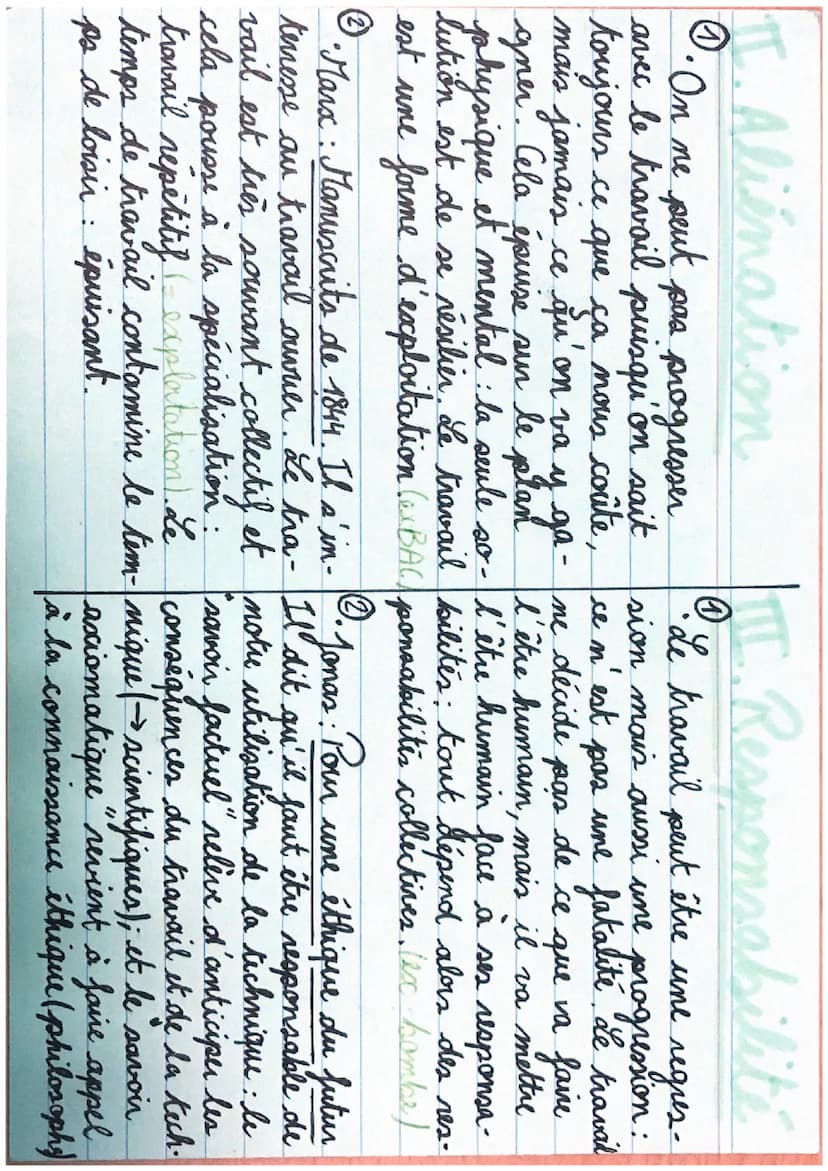 II. Aliénation
① . On ne peut pas progresser
avec le travail puisqu'on sait
toujours ce que ça nous coûte,
mais jamais ce qu'on va y ga-
gner. Cela épuise sur le plan
physique et mental : la seule so-
lution est de se résilier. Le travail
est une forme d'exploitation. (ex BAC)
② . Marx : Manuscrits de 1844. Il s'in-
teresse au travail ouvrier. Le tra-
vail est très souvant collectif et
cela pousse à la spécialisation :
travail répétitif (= exploitation). Le
temps de travail contamine le tem-
ps de loisir : épuisant.
III. Responsabilité
① . Le travail peut être une regres-
sion mais aussi une progression :
ce n'est pas une fatalité. Le travail
ne décide pas de ce que va faire
l'être humain, mais il va mettre
l'être humain face à ses responsa-
bilités : tout dépend alors des res-
ponsabilités collectives. (ex : bombe)
② . Jonas : Pour une éthique du futur
Il dit qu'il faut être responsable de
notre utilisation de la technique : le
"savoir factuel" relève d'anticiper les
conséquences du travail et de la tech-
nique (→ scientifiques) ; et le savoir
axiomatique" revient à faire appel
à la connaissance éthique (philosophe)